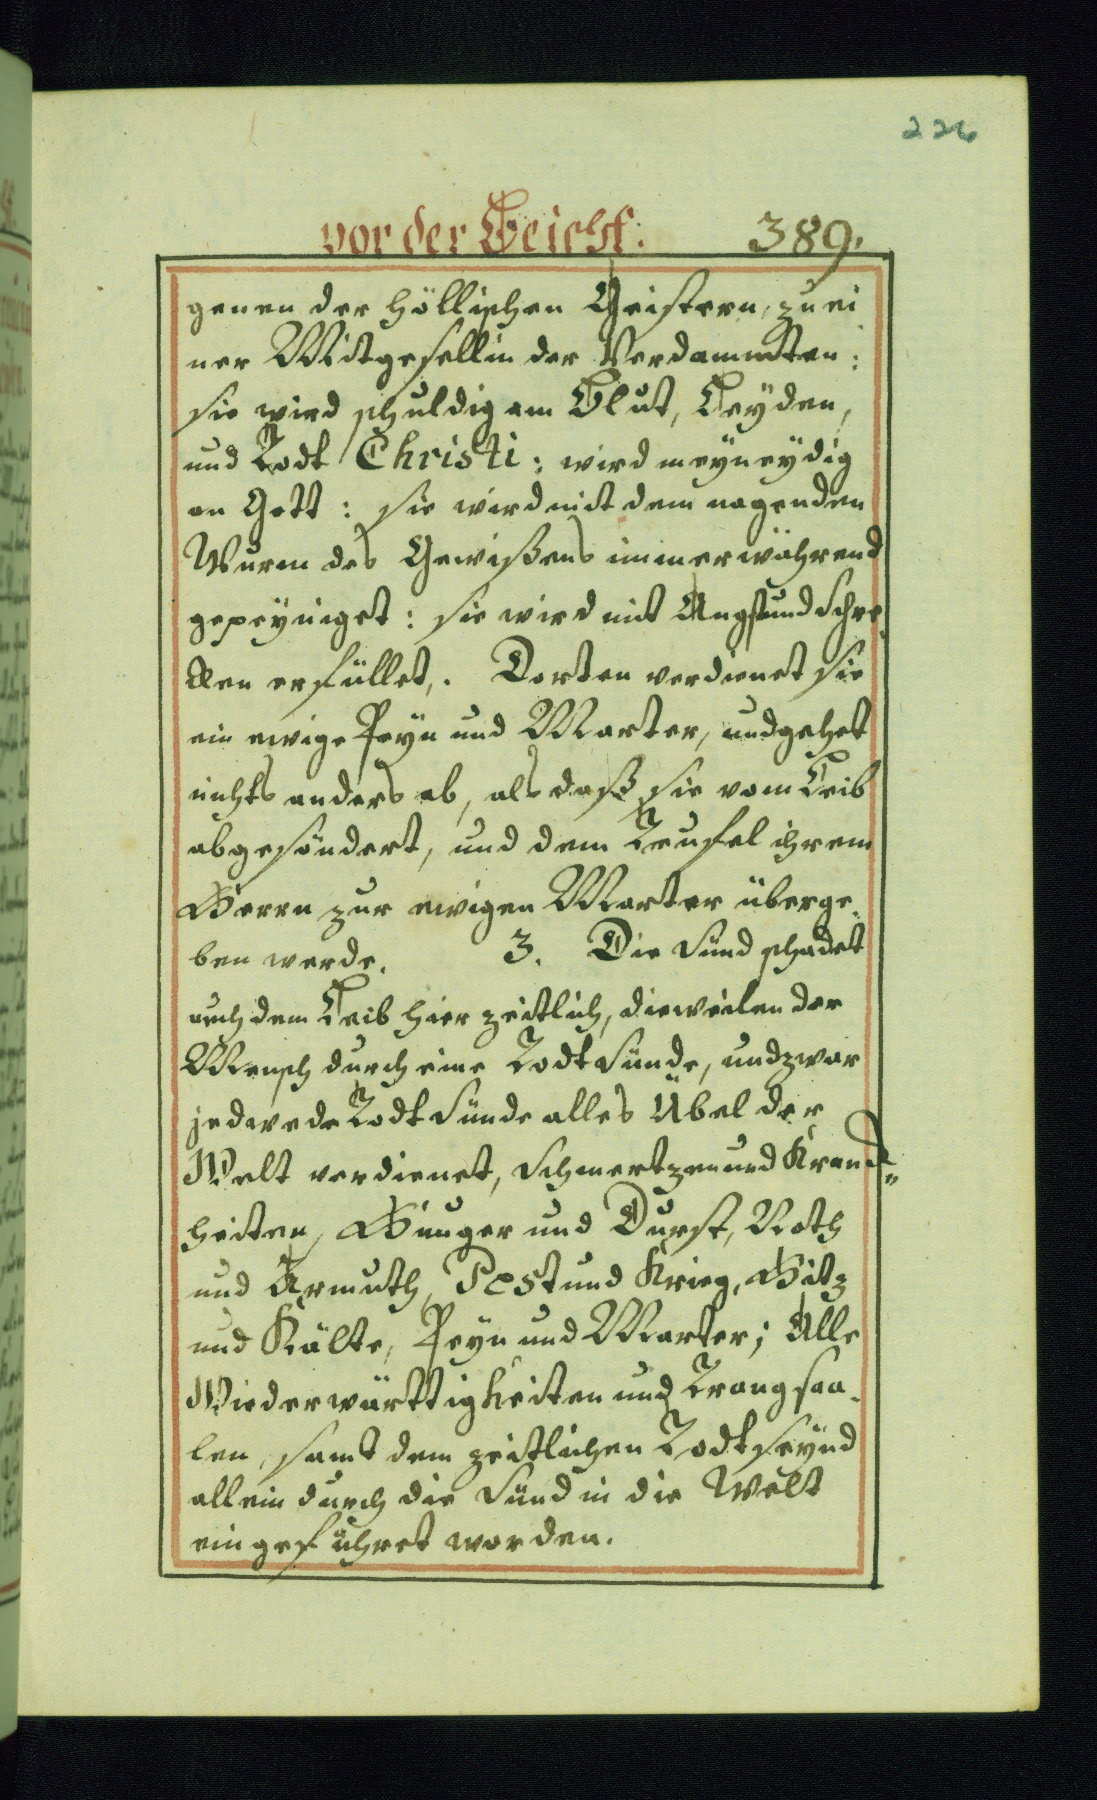 226
vor der Beicht. 389.
genen der höllischen Geistern, zu ei
ner Mitgesellin der Verdammten:
sie wird schuldig am Blut, Leyden,
und Todt Christi: wird meyneydig
an Gott: sie wird mit dem nagenden
Wurm des Gewißens immerwährend
gepeyniget: sie wird mit Angst und Schre¬
cken erfüllet. Dorten verdienet sie
ein ewige Peyn und Marter, und gehet
nichts anders ab, als daß sie vom Leib
abgesöndert, und dem Teufel ihrem
Herrn zur ewigen Marter überge¬
ben werde. 3. Die Sünd schadet
auch dem Leib hier zeitlich, dieweilen der
Mensch durch eine Todtsünde, und zwar
jedwede Todtsünde alles Übel der
Welt verdienet, Schmertzen und Kranck=
heiten, Hunger und Durst, Noth
und Armuth, Pest und Krieg, Hitz
und Kälte, Peyn und Marter; Alle
Wiederwärttigkeiten und Trangsaa¬
len, samt dem zeitlichen Todt seynd
allein durch die Sünd in die Welt
eingeführet worden.